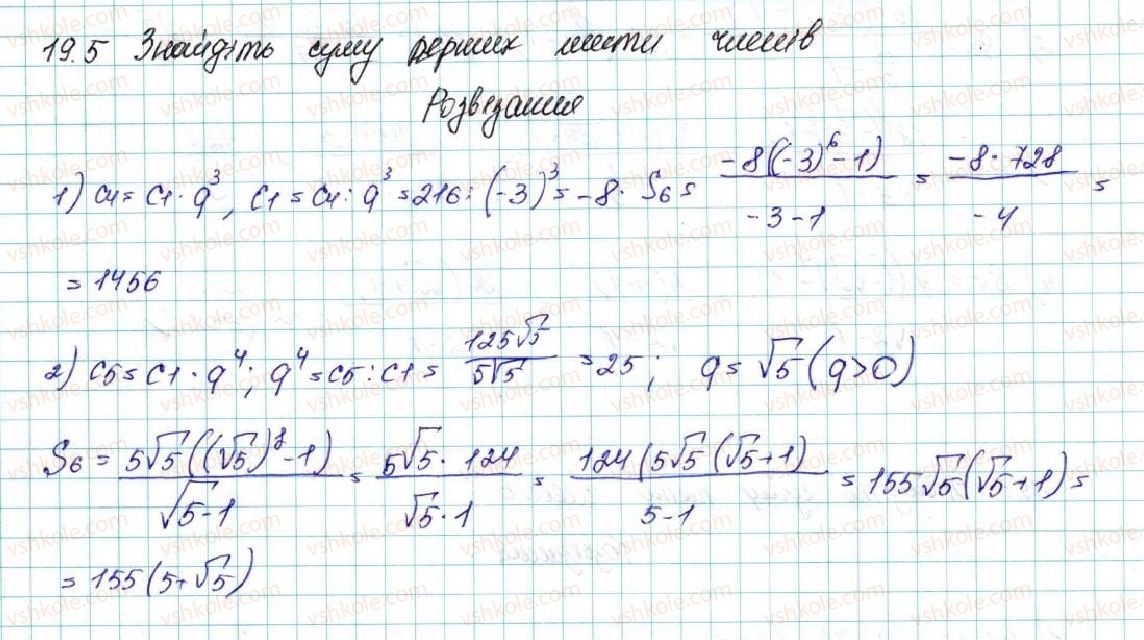 19.5 Знайдіть суму перших шести членів
Розвізання
1) c4 = c1 · q^3, c1 = c4 : q^3 = 216 : (-3)^3 = -8. S6 = \frac{-8((-3)^6 - 1)}{-3 - 1} = \frac{-8 · 728}{-4} =
= 1456
2) c5 = c1 · q^4; q^4 = c5 : c1 = \frac{125√5}{5√5} = 25; q = √5 (q>0)
S6 = \frac{5√5((√5)^2 - 1)}{√5 - 1} = \frac{5√5 · 124}{√5 · 1} = \frac{124(5√5(√5+1)}{5-1} = 155√5(√5+1) =
= 155(5+√5)
vshkole.com